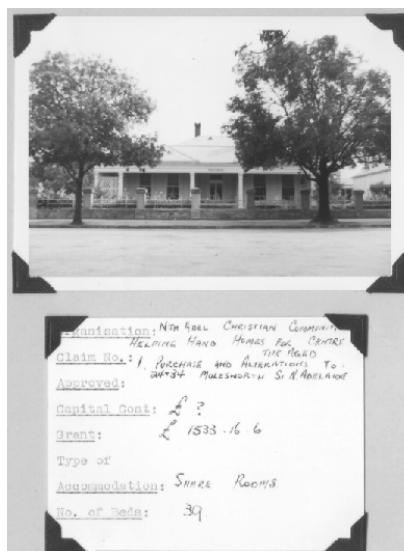 Organisation: NTH ADEL CHRISTIAN COMMUNITY
HELPING HAND HOMES FOR CENTRE
THE AGED
Claim No.: 1. PURCHASE AND ALTERATIONS TO
34 MOLESWORTH ST N. ADELAIDE
Approved:
Capital Cost: £ ?
Grant: £ 1533.16.6
Type of
Accommodation: SHARE ROOMS
No. of Beds: 39